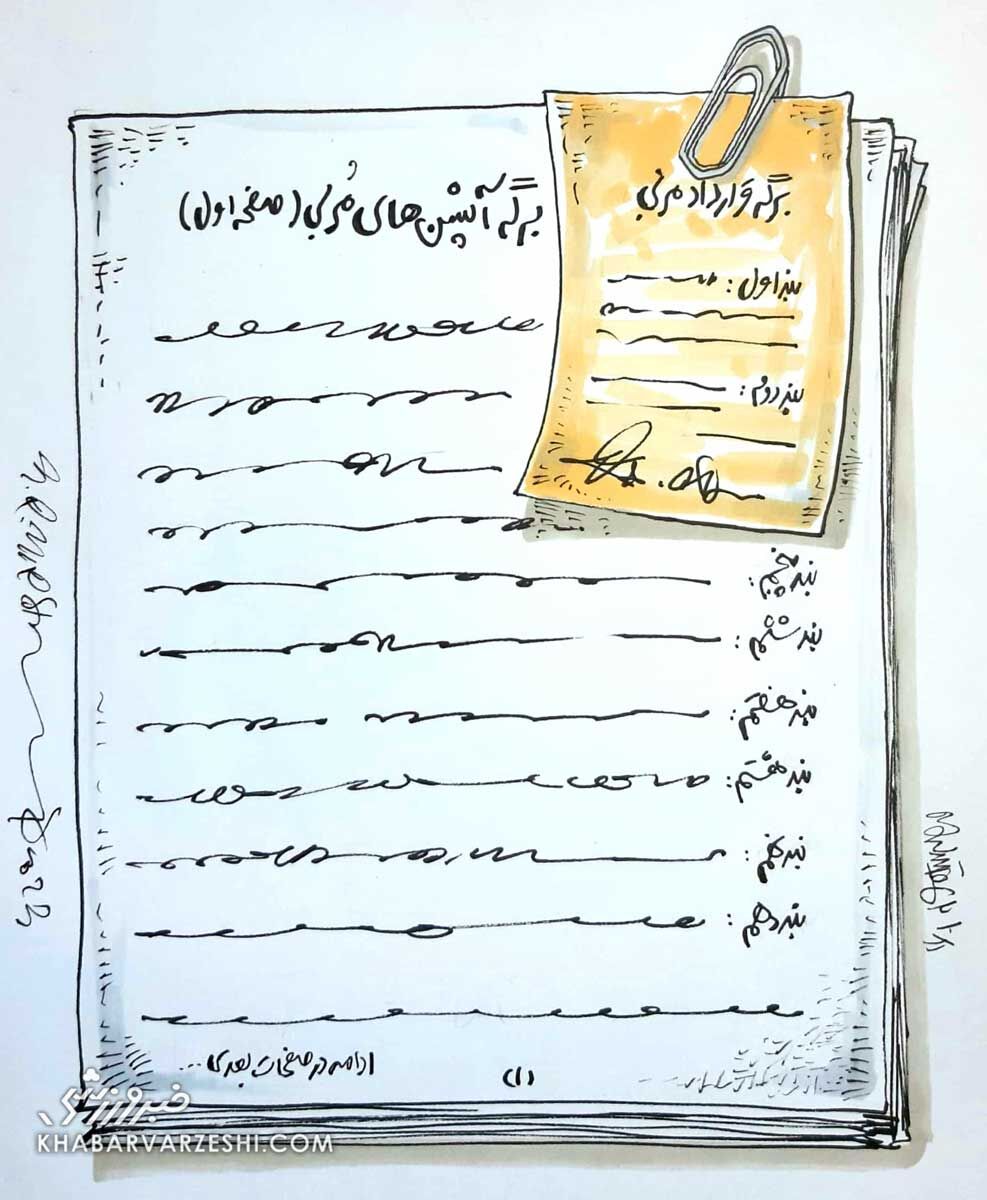 برگه قرارداد مربی
بند اول :
بند دوم :
برگه آپشن های مُربی (صفحه اول)
بند پنجم :
بند ششم :
بند هفتم :
بند هشتم :
بند نهم :
بند دهم :
ادامه در صفحات بعدی ...
(۱)
خبرورزشی
KHABARVARZESHI.COM